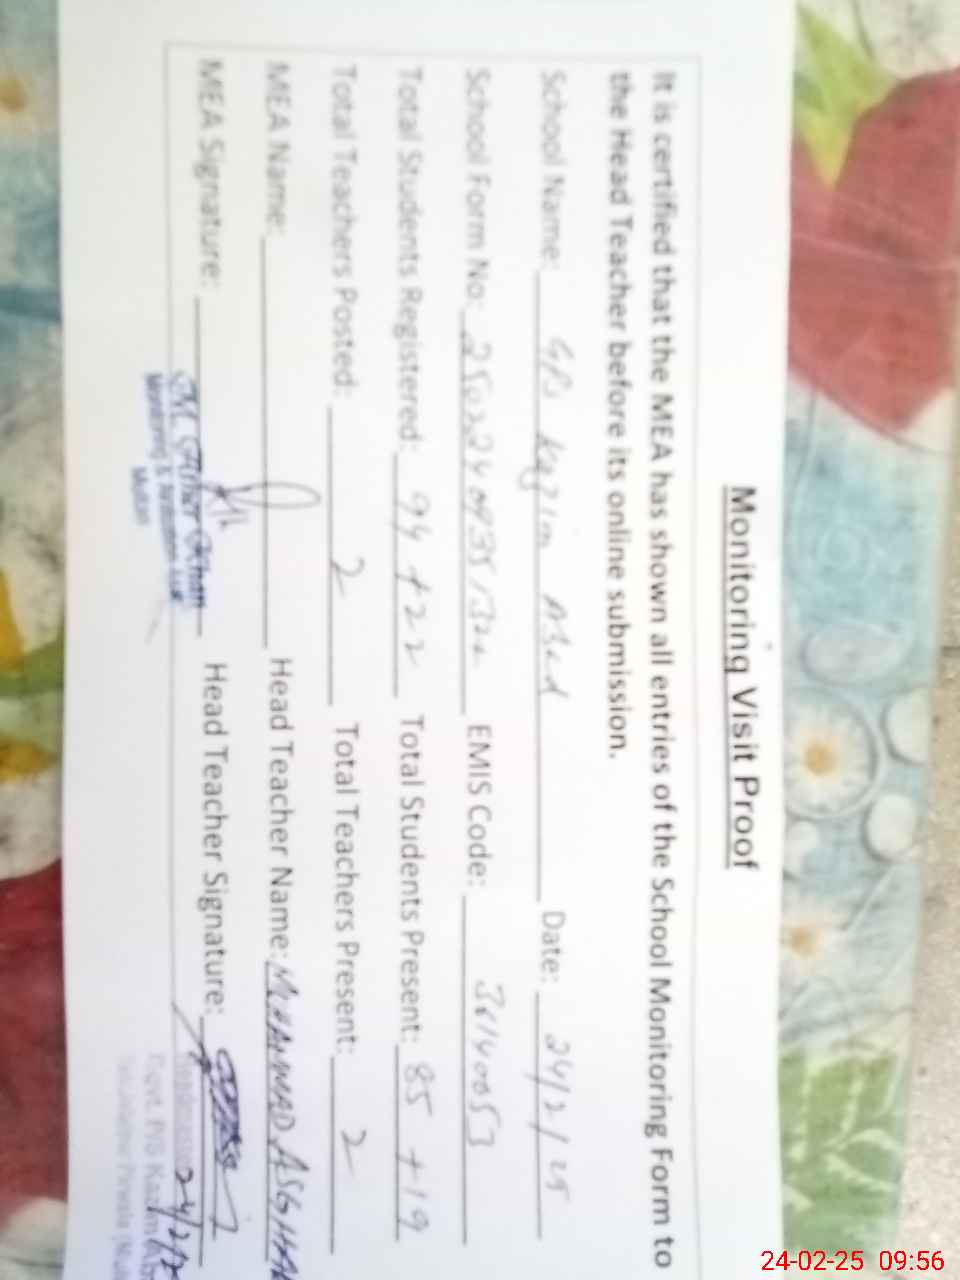 Monitoring Visit Proof
It is certified that the MEA has shown all entries of the School Monitoring Form to
the Head Teacher before its online submission.
School Name: GPS Kazim Abad Date: 24/2/25
School Form No: EMIS Code: 36140053
Total Students Registered: 94 + 22 Total Students Present: 85 + 19
Total Teachers Posted: 2 Total Teachers Present: 2
MEA Name: Head Teacher Name: MUHAMMAD ASGHAR
MEA Signature: Head Teacher Signature:
24/2/
Monitoring &
Multan
Govt. P/S Kazim
24-02-25 09:56